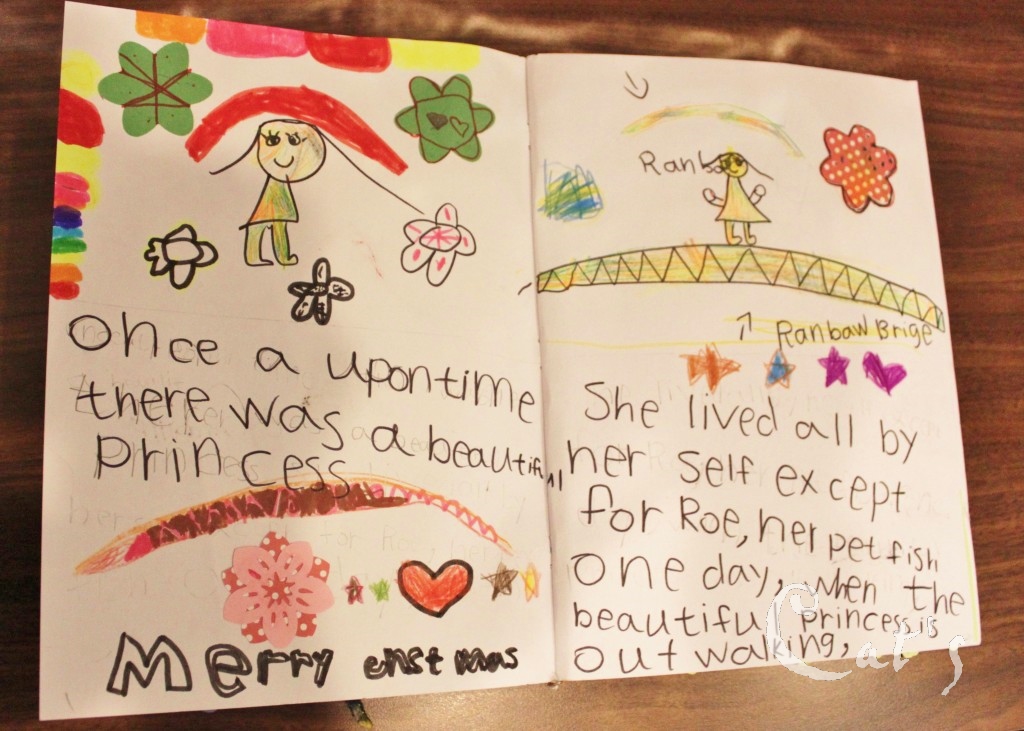 once a upontime
there was a beautiful
princess
Merry enstmas
Ranbo
Ranbaw Brige
She lived all by
her self except
for Roe, her pet fish
one day, when the
beautiful princess is
out walking,
Cat's